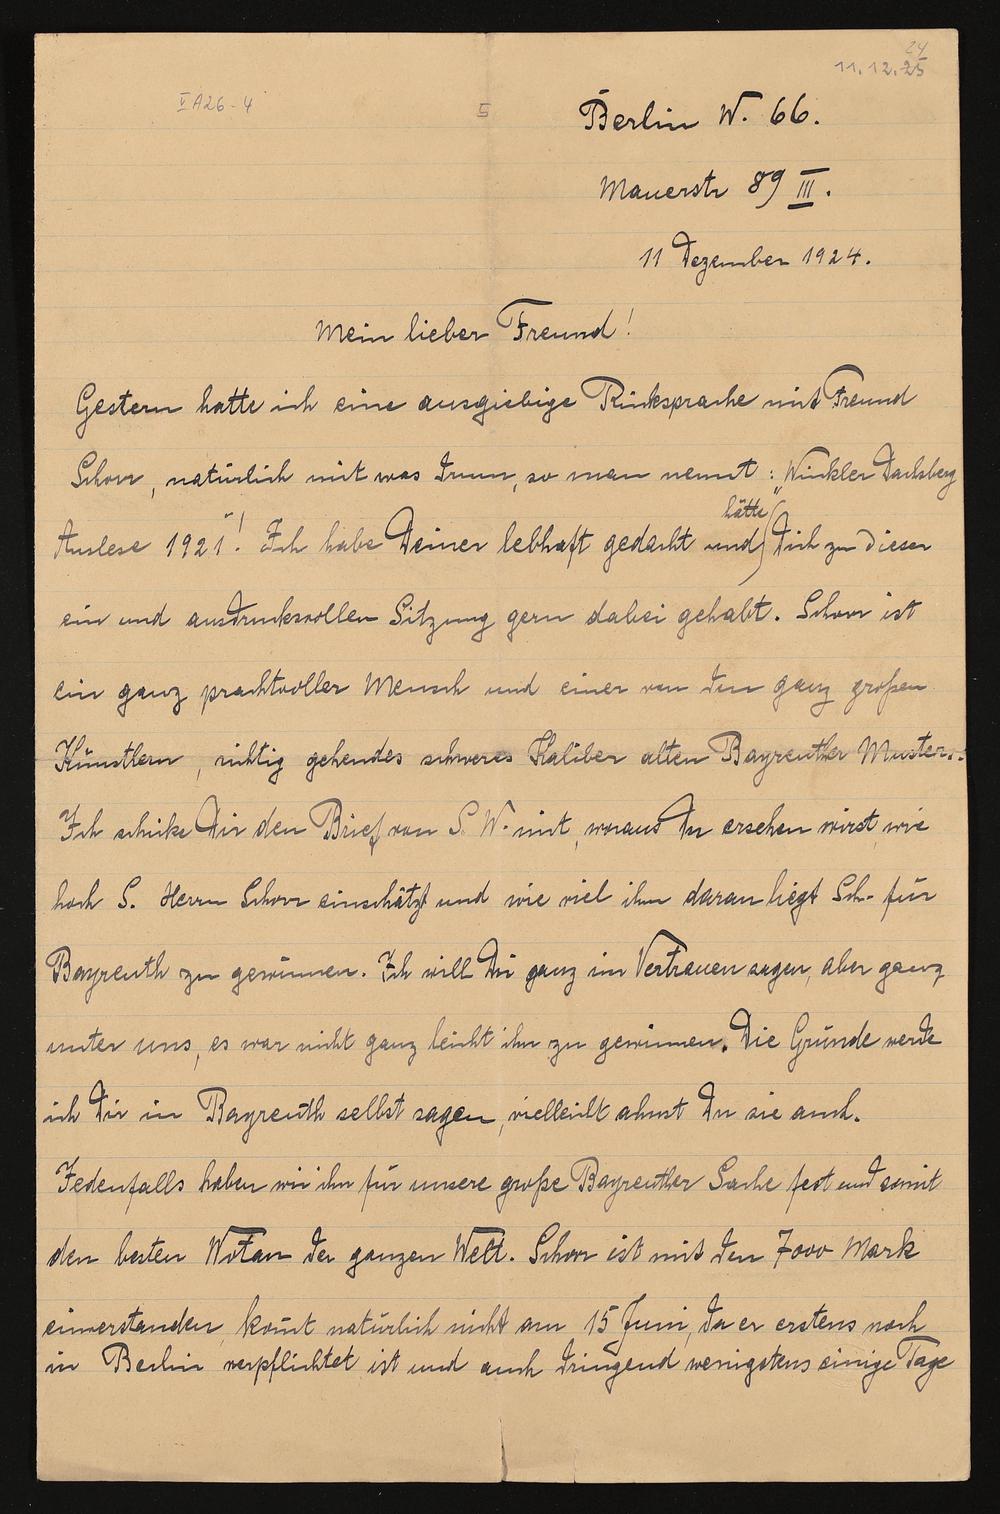 24
11.12.25
V A26-4
5
Berlin W. 66.
Mauerstr 89 III.
11 Dezember 1924.
Mein lieber Freund!
Gestern hatte ich eine ausgiebige Rücksprache mit Freund
Schorr, natürlich mit was drum, so man nennt: „Winkler Dachsberg
Auslese 1921"! Ich habe Deiner lebhaft gedacht und hätte Dich zu dieser
ein und ausdrucksvollen Sitzung gern dabei gehabt. Schorr ist
ein ganz prachtvoller Mensch und einer von den ganz großen
Künstlern, richtig gehendes schweres Kaliber alten Bayreuther Musters.
Ich schicke Dir den Brief von S. W. mit, woraus Du ersehen wirst, wie
hoch S. Herrn Schorr einschätzt und wie viel ihm daran liegt Sch. für
Bayreuth zu gewinnen. Ich will Dir ganz im Vertrauen sagen, aber ganz
unter uns, es war nicht ganz leicht ihn zu gewinnen. Die Gründe werde
ich Dir in Bayreuth selbst sagen, vielleicht ahnst Du sie auch.
Jedenfalls haben wir ihn für unsere große Bayreuther Sache fest und somit
den besten Wotan der ganzen Welt. Schorr ist mit den 7000 Mark
einverstanden kom̄t natürlich nicht am 15 Juni, da er erstens noch
in Berlin verpflichtet ist und auch dringend wenigstens einige Tage